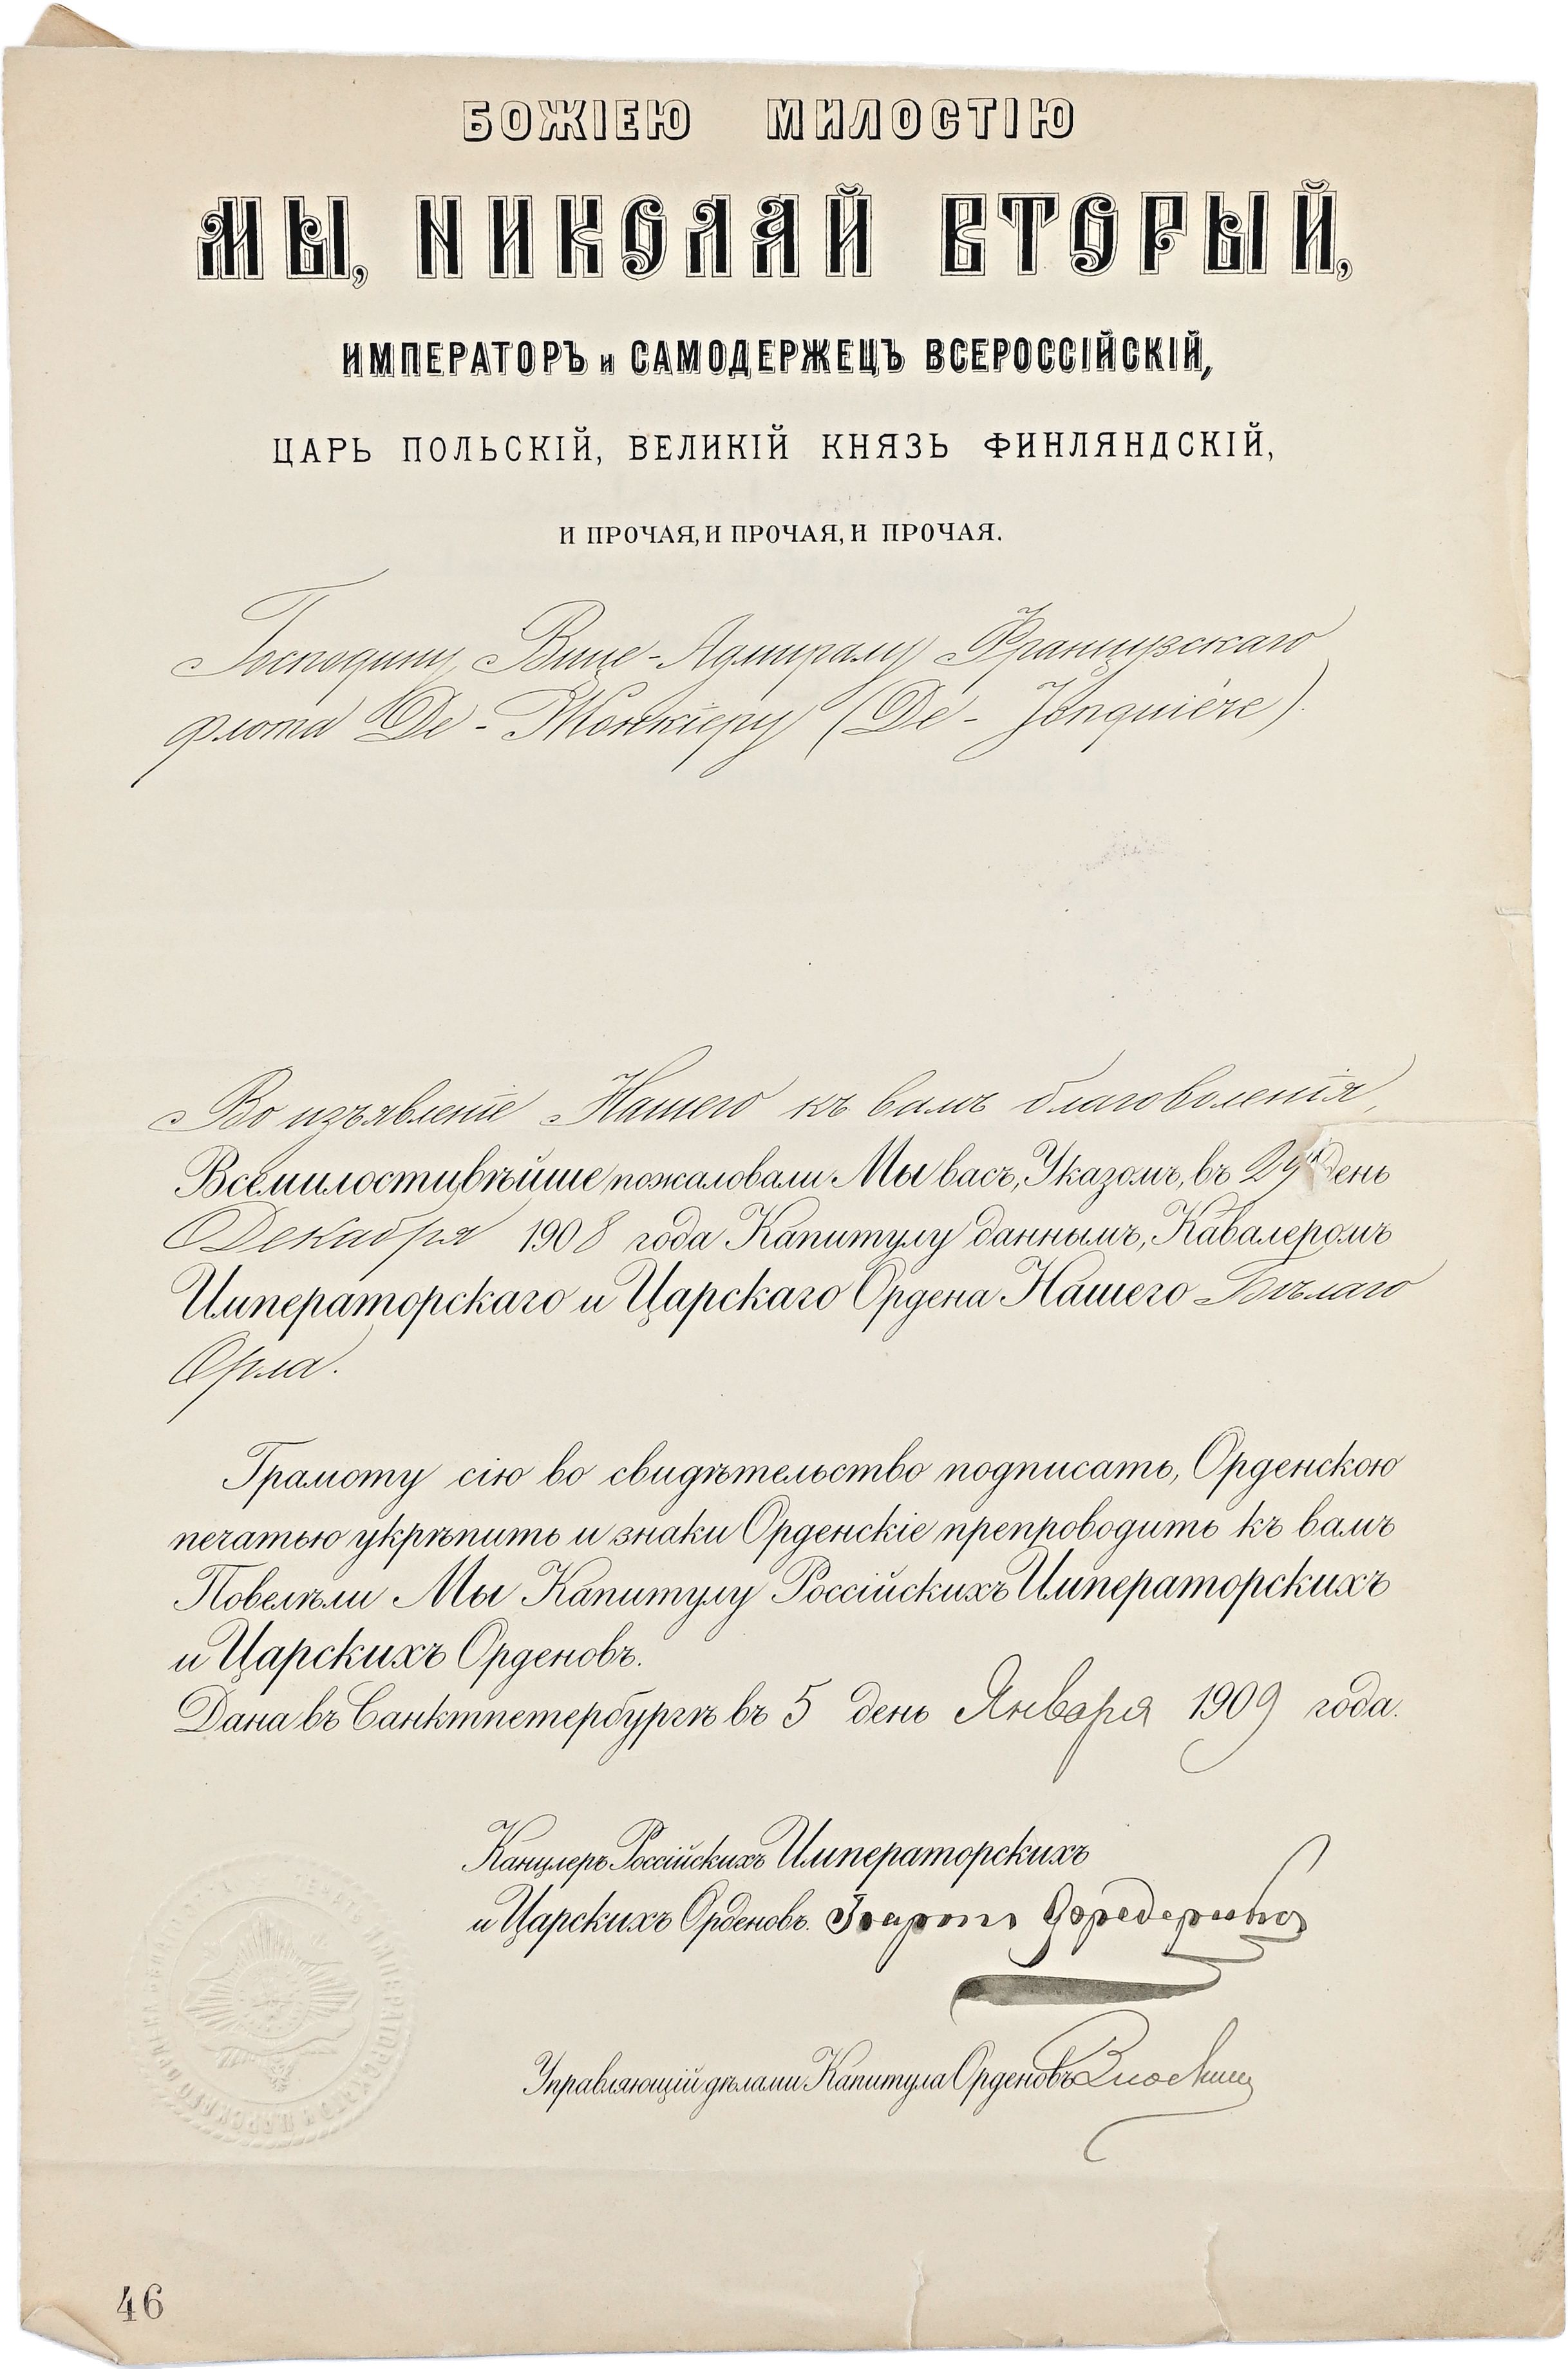 БОЖІЕЮ МИЛОСТІЮ
МЫ, НИКОЛАЙ ВТОРЫЙ,
ИМПЕРАТОРЪ и САМОДЕРЖЕЦЪ ВСЕРОССІЙСКІЙ,
ЦАРЬ ПОЛЬСКІЙ, ВЕЛИКІЙ КНЯЗЬ ФИНЛЯНДСКІЙ,
И ПРОЧАЯ, И ПРОЧАЯ, И ПРОЧАЯ.
Господину Вице-Адмиралу Французскаго
флота Де-Жонкіеру (De-Jonquière).
Во изъявленіе Нашего къ вамъ благоволенія,
Всемилостивѣйше пожаловали Мы васъ, Указомъ, въ 29й день
Декабря 1908 года Капитулу даннымъ, Кавалеромъ
Императорскаго и Царскаго Ордена Нашего Бѣлаго
Орла.
Грамоту сію во свидѣтельство подписать, Орденскою
печатью укрѣпить и знаки Орденскіе препроводить къ вамъ
Повелѣли Мы Капитулу Россійскихъ Императорскихъ
и Царскихъ Орденовъ.
Дана въ Санктпетербургѣ въ 5 день Января 1909 года.
Канцлеръ Россійскихъ Императорскихъ
и Царскихъ Орденовъ. Баронъ Фредериксъ
Управляющій дѣлами Капитула Орденовъ
46